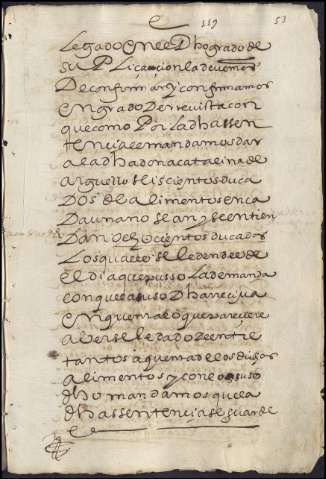 119 53
legado en el dho grado de
suplicacion la devemos
de confirmar y confirmamos
en grado de rrevista con
que como por la dha sen
tencia se mandamos dar
a la dha dona catalina de
arguello seiscientos duca
dos de alimentos en ca
da un ano sean y se entien
dan ochocientos ducados
los quales se le den desde
el dia que puso la demanda
con que el susodho rreciva
en quenta lo que pareciere
averse le dado de entre
tantos a quenta de los dichos
alimentos y con lo suso
dho mandamos que la
dha sentencia se guarde